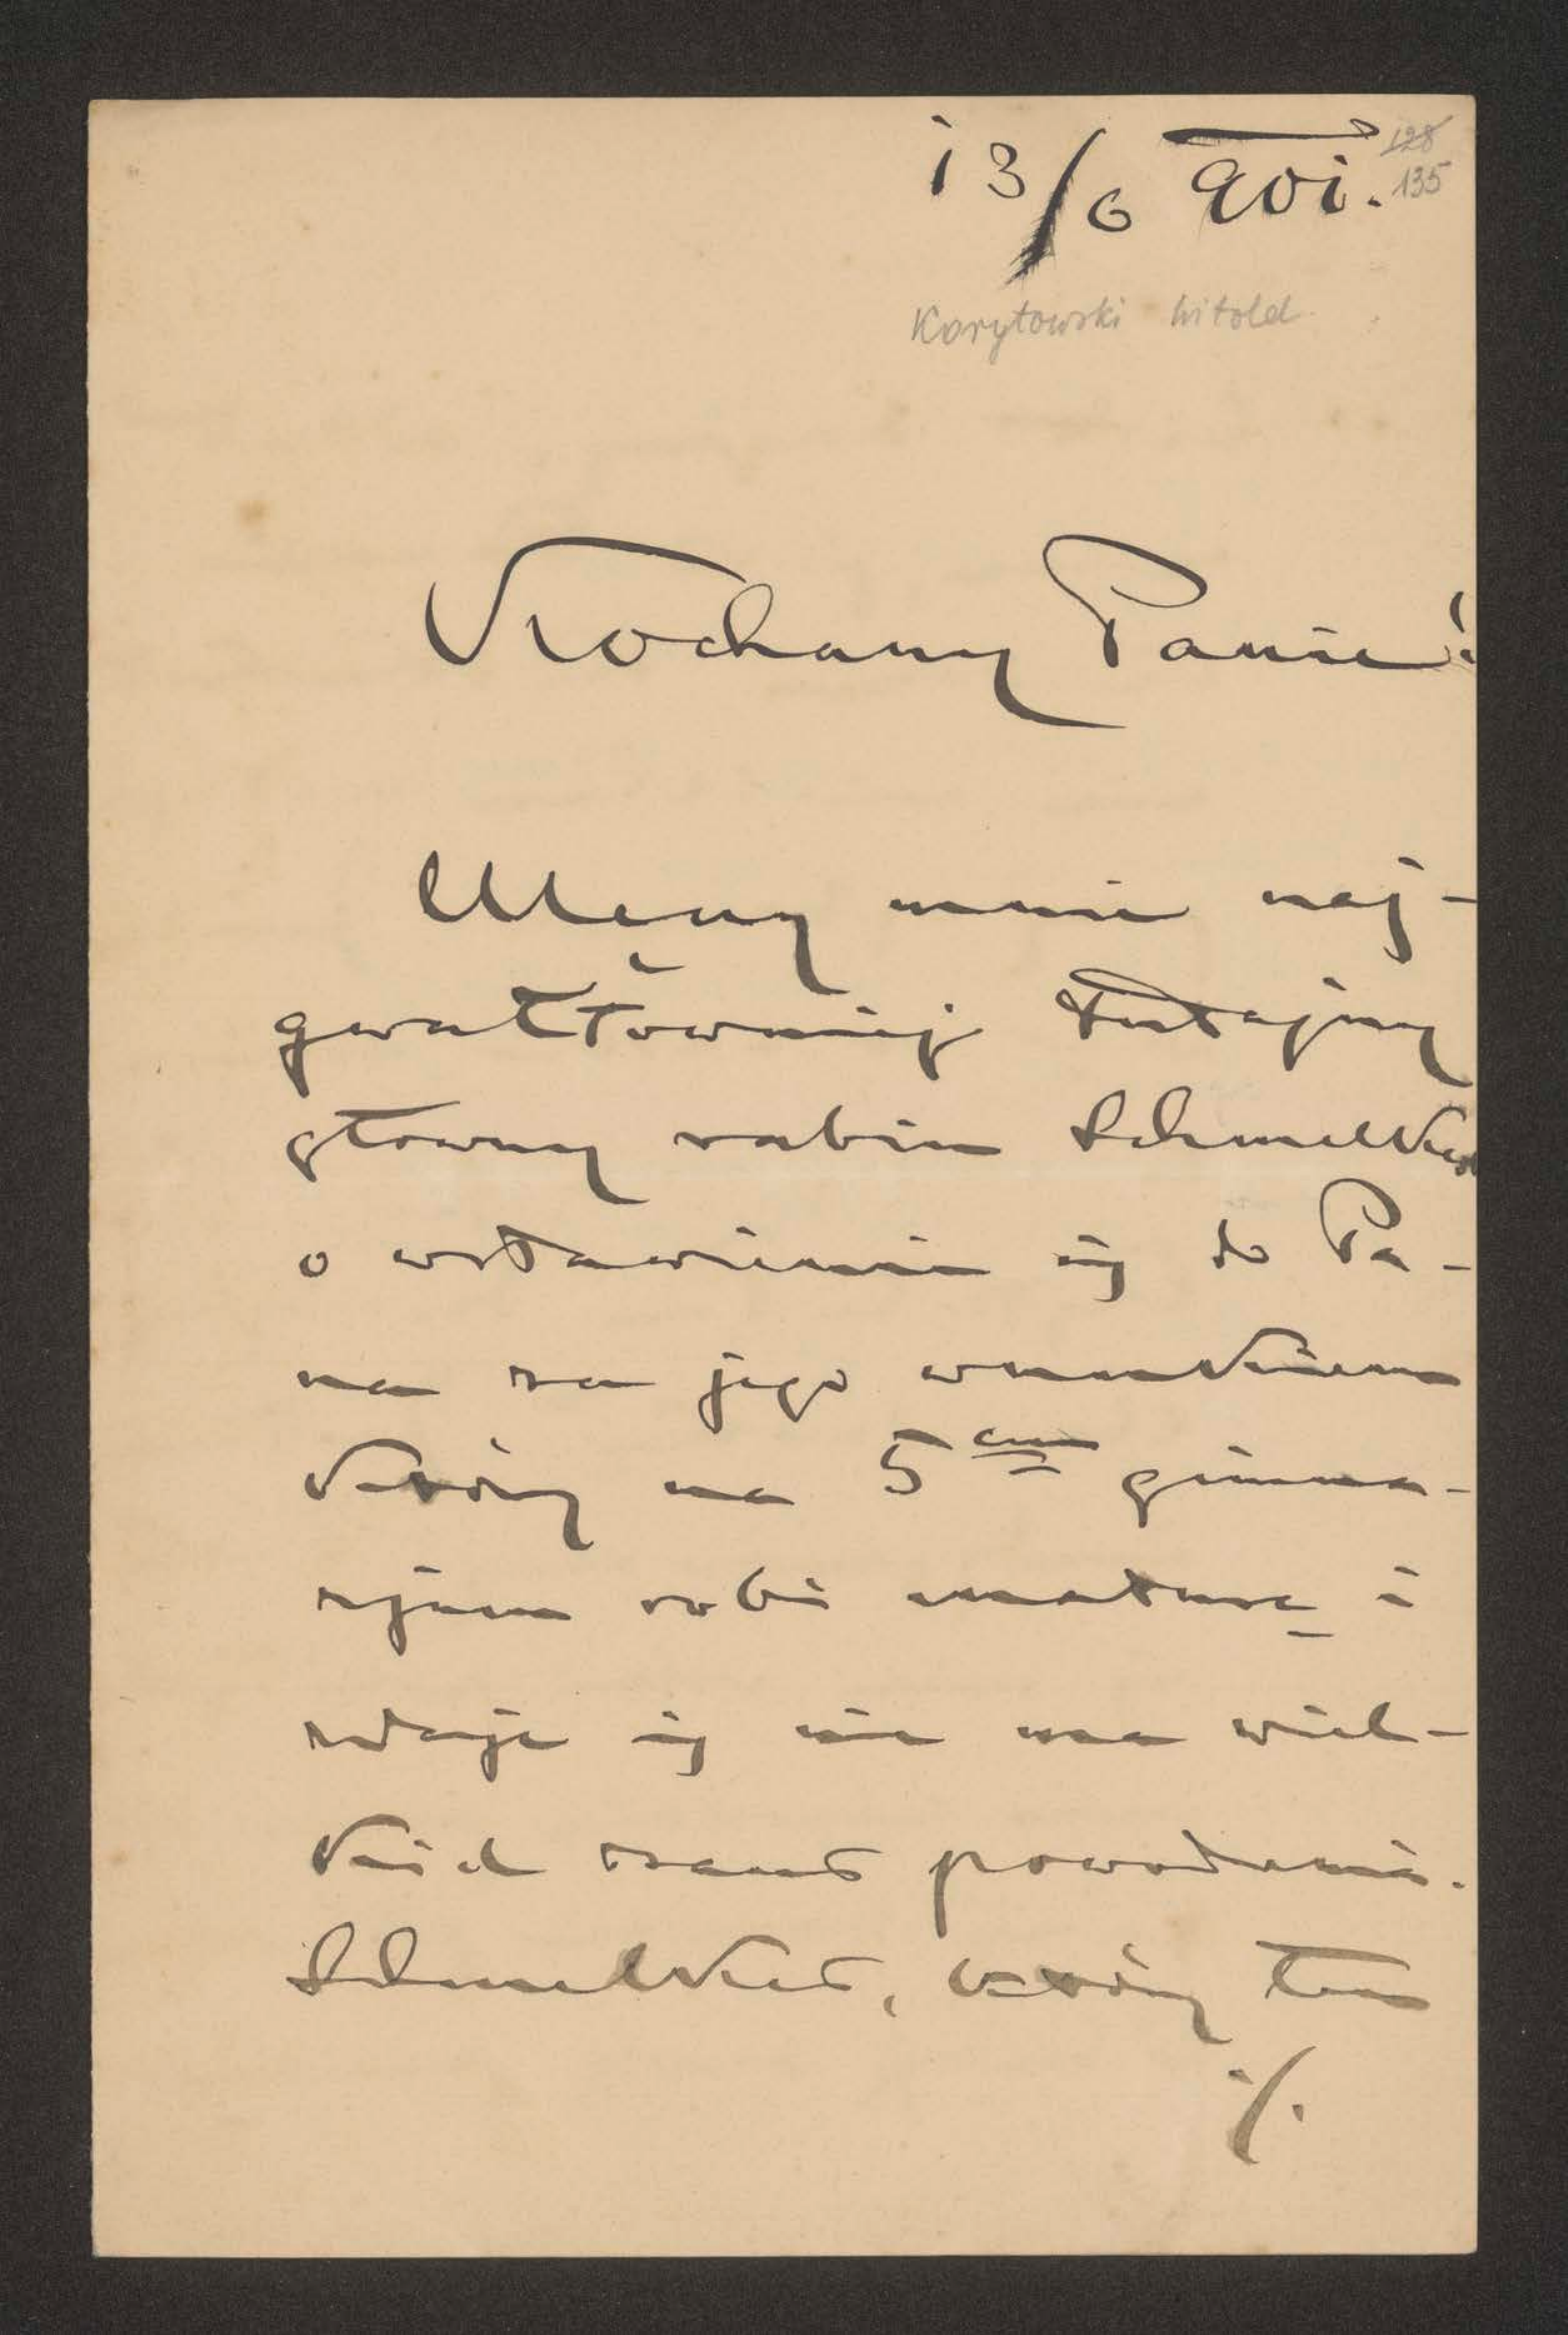 13/6 901.
128
135
Korytowski Witold
Kochany Panie!
Męczy mnie naj-
gwałtowniej tutejszy
główny rabin Schmelkes
o wstawienie się do Pa-
na za jego wnukiem
który na 5em gimna-
zjum robi maturę i
zdaje się nie ma wiel-
kich szans powodzenia.
Schmelkes, który tem
./.